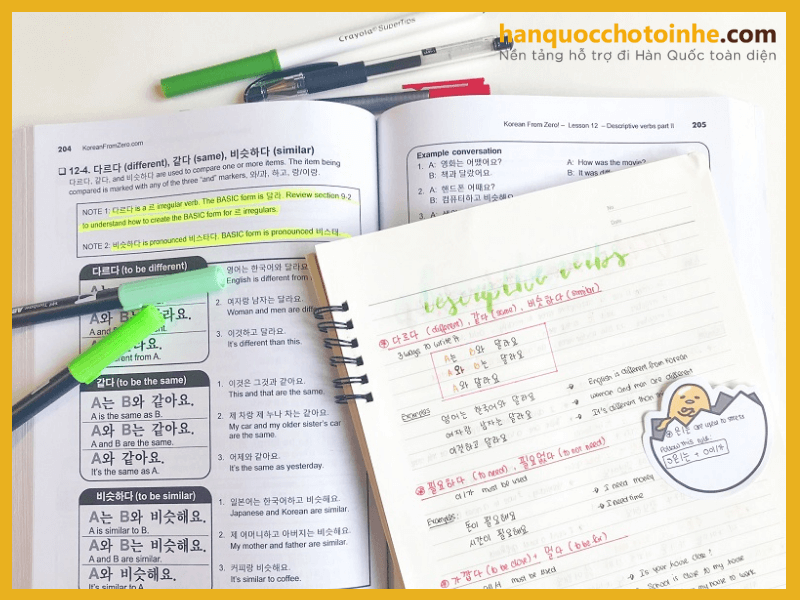 hanquocchotoinhe.com
Nền tảng hỗ trợ đi Hàn Quốc toàn diện
Crayola SuperTips
204 KoreanFromZero.com
❏ 12-4. 다르다 (different), 같다 (same), 비슷하다 (similar)
다르다, 같다, and 비슷하다 are used to compare one or more items. The item being
compared is marked with any of the three “and” markers, 와/과, 하고, 랑/이랑.
NOTE 1: 다르다 is a 르 irregular verb. The BASIC form is 달라. Review section 9-2
to understand how to create the BASIC form for 르 irregulars.
NOTE 2: 비슷하다 is pronounced 비스타다. BASIC form is pronounced 비스태.
다르다 (to be different)
A와 B
라요.
A and B
ferent from A.
1. 영어는 한국어와 달라요.
English is different from
2. 여자랑 남자는 달라요.
Woman and men are diff
3. 이것하고 달라요.
It's different than this.
같다 (to be the same)
A는 B와 같아요.
A is the same as B.
A와 B는 같아요.
A and B are the same.
A와 같아요.
It's the same as A.
1. 이것은 그것과 같아요.
This and that are the same.
2. 제 차랑 제 누나 차는 같아요.
My car and my older sister's car
are the same.
3. 어제와 같아요.
It's the same as yesterday.
비슷하다 (to be similar)
A는 B와 비슷해요.
A is similar to B.
A와 B는 비슷해요.
A and B are similar.
A와 비슷해요.
It's similar to A.
1. 일본어는 한국어하고 비슷해요.
Japanese and Korean are similar.
2. 제 어머니하고 아버지는 비슷해요.
My mother and father are similar.
3. 커피랑 비슷해요.
It's similar to coffee.
Korean From Zero! – Lesson 12 – Descriptive verbs part II 205
Example conversation
1. A: 영화는 어땠어요?
B: 책과 달랐어요.
A: How was the movie?
B: It was
2. A: 핸드폰 어때요?
B: 컴퓨터하고 비슷해
3. A:
No.
Date.
descriptive verbs
다르다 (different), 같다 (same), 비슷하다 (similar)
3 ways to write it
A는 B와 달라요
A와 B는 달라요
A와 달라요
Examples
영어는 한국어와 달라요 → English is different from Korean
여자랑 남자는 달라요 → woman and men are different
이것하고 달라요 → It's different than
필요하다 (to need), 필요없다 (to not need)
이/가 must be used
Examples:
돈이 필요해요 → I need money
시간이 필요해요 → I need time
가깝다 (to be close) + 멀다 (to be far)
must be used
→ Is your house close?
→ School is close to my house
my house to work
은/는 are used to
Follow this rule: